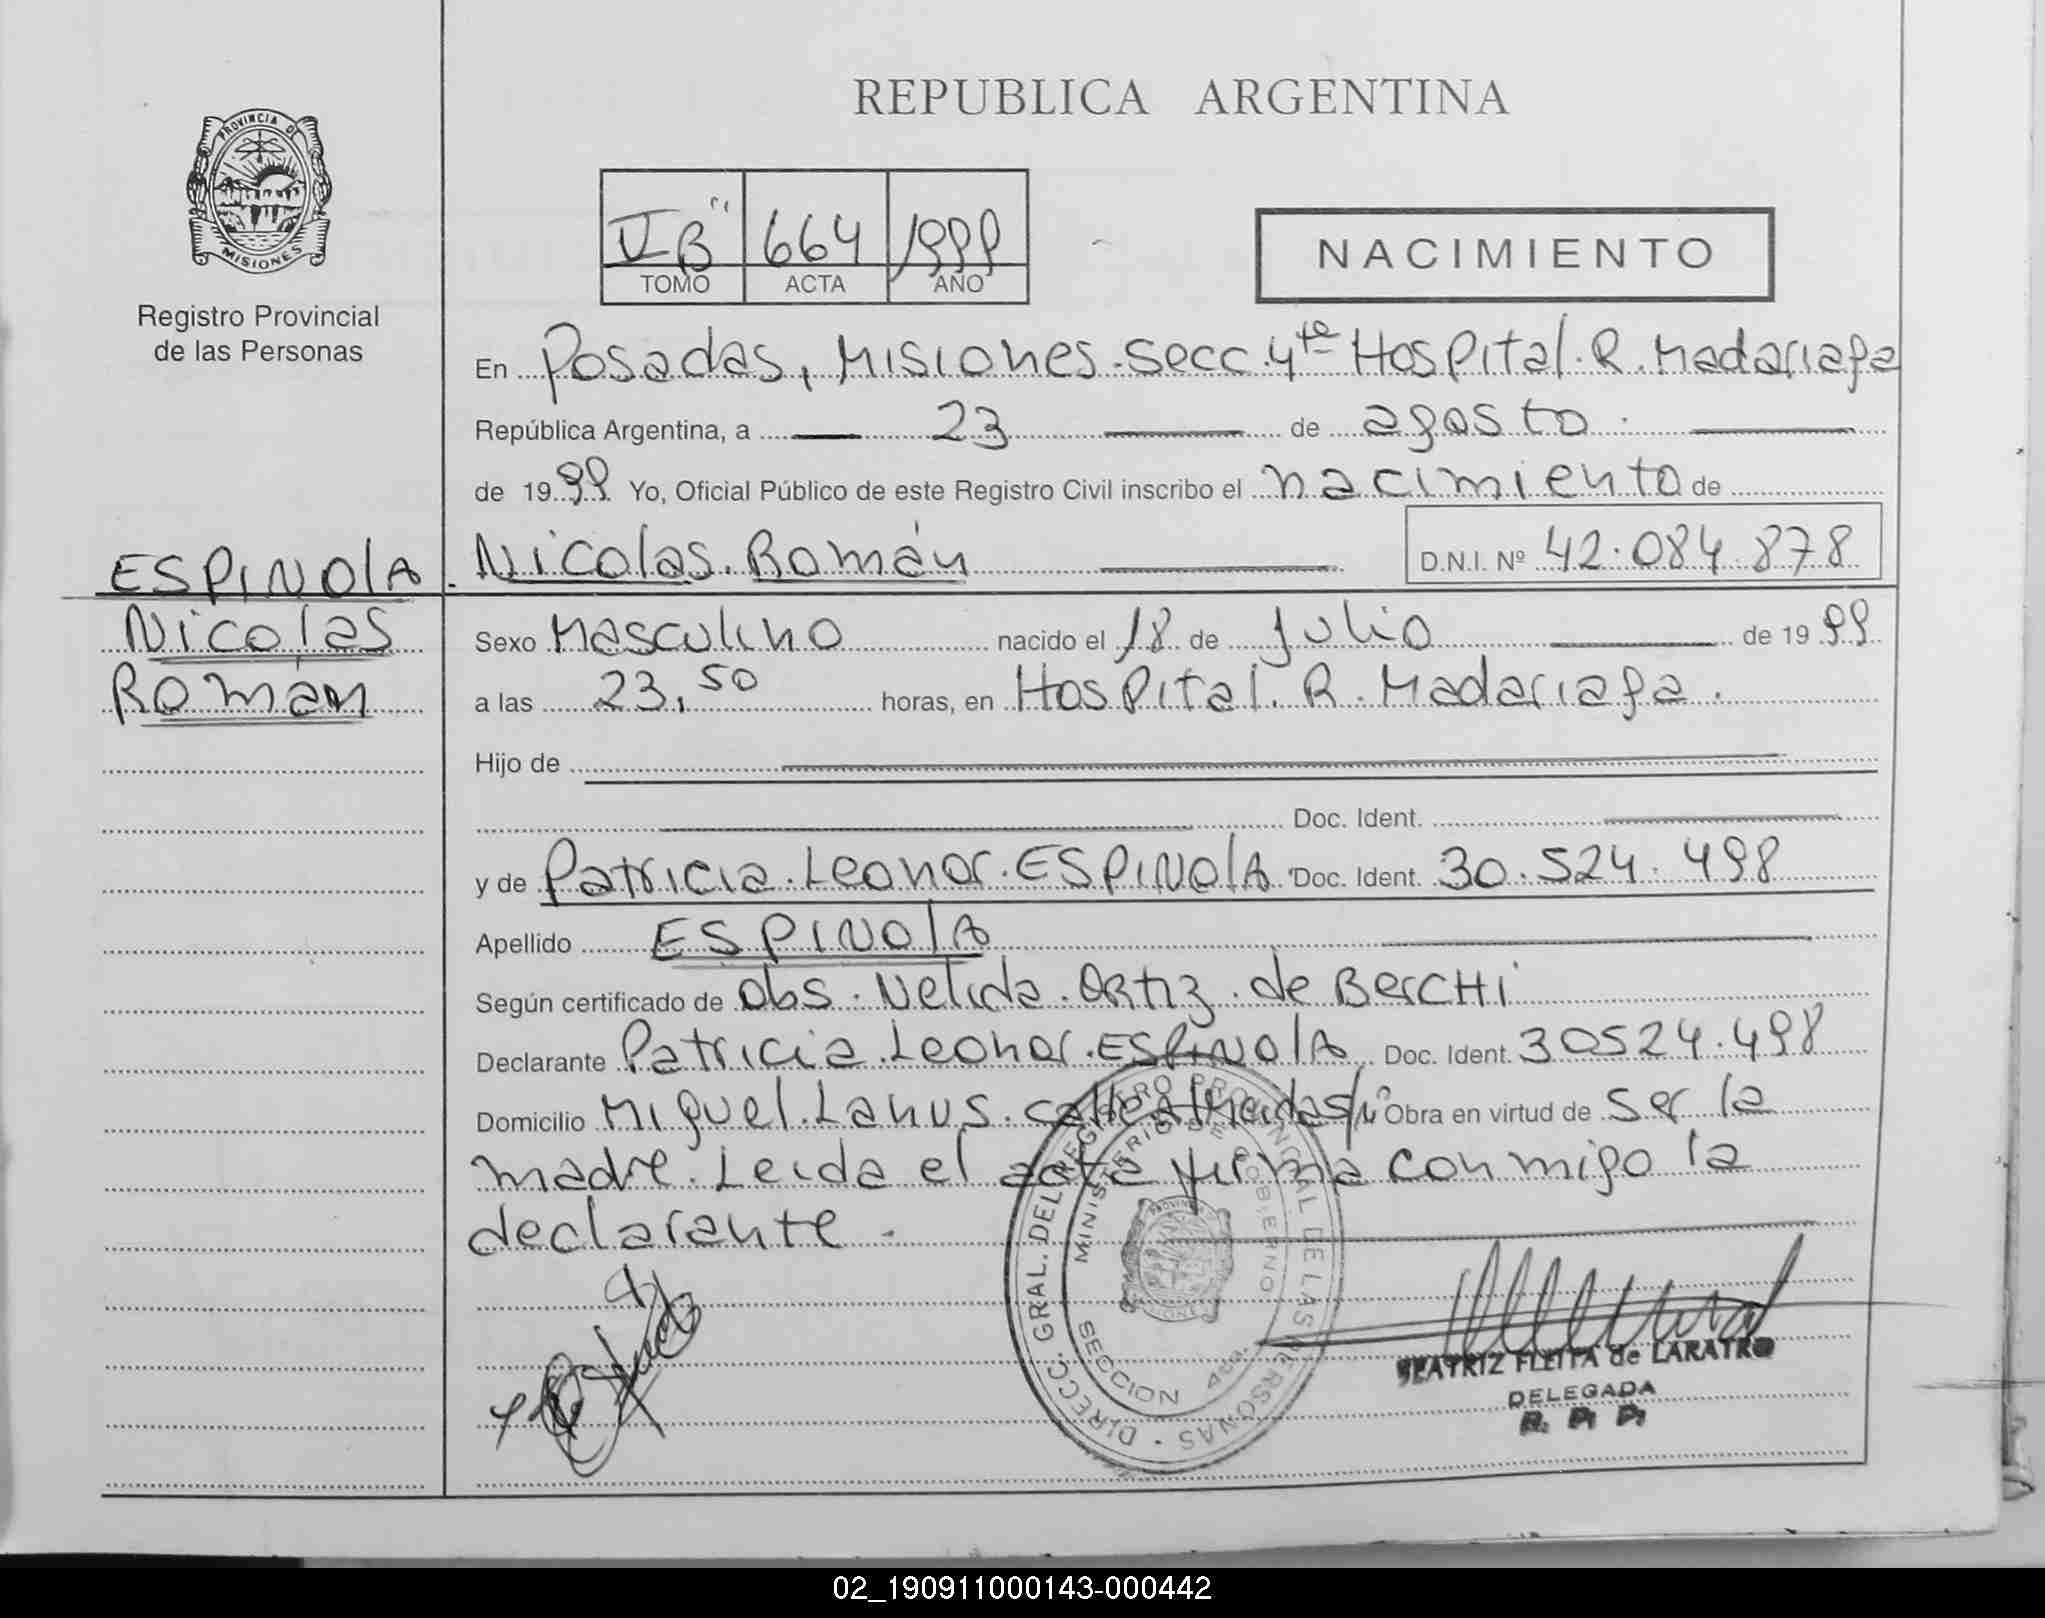 REPUBLICA ARGENTINA
PROVINCIA DE
MISIONES
Registro Provincial
de las Personas
V B" 664 1999
TOMO ACTA AÑO
NACIMIENTO
En Posadas, Misiones. Secc. 4ta Hospital. R. Madariaga
República Argentina, a 23 de agosto.
de 1999 Yo, Oficial Público de este Registro Civil inscribo el nacimiento de
ESPINOlA. Nicolas. Román D.N.I. Nº 42.084.878
Nicolas
Román
Sexo Masculino nacido el 18 de Julio de 1999
a las 23,50 horas, en Hospital. R. Madariaga.
Hijo de
Doc. Ident.
y de Patricia. Leonor. ESPINOlA Doc. Ident. 30.524.498
Apellido ESPINOlA
Según certificado de Obs. Nelida. Ortiz. de BerCHi
Declarante Patricia. Leonor. ESPINOlA Doc. Ident. 30524.498
Domicilio Miguel. Lanus. calle s/nº Obra en virtud de ser la
madre. Leida el acta firma conmigo la
declarante.
DIRECC. GRAL. DEL REGISTRO PROVINCIAL DE LAS PERSONAS
MINISTERIO DE GOBIERNO
SECCION 4ta.
BEATRIZ FLEITA de LARATRO
DELEGADA
R. P. P.
02_190911000143-000442